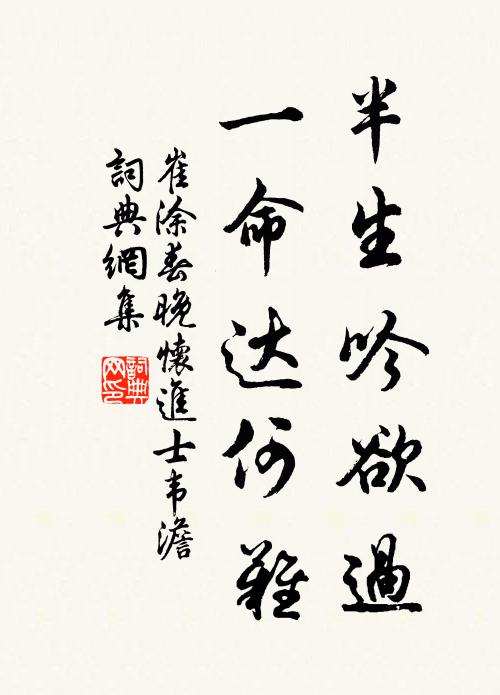 半生吟欲過
一命达何難
崔涂春晚懷進士韦澹
詞典網集
詞典网印